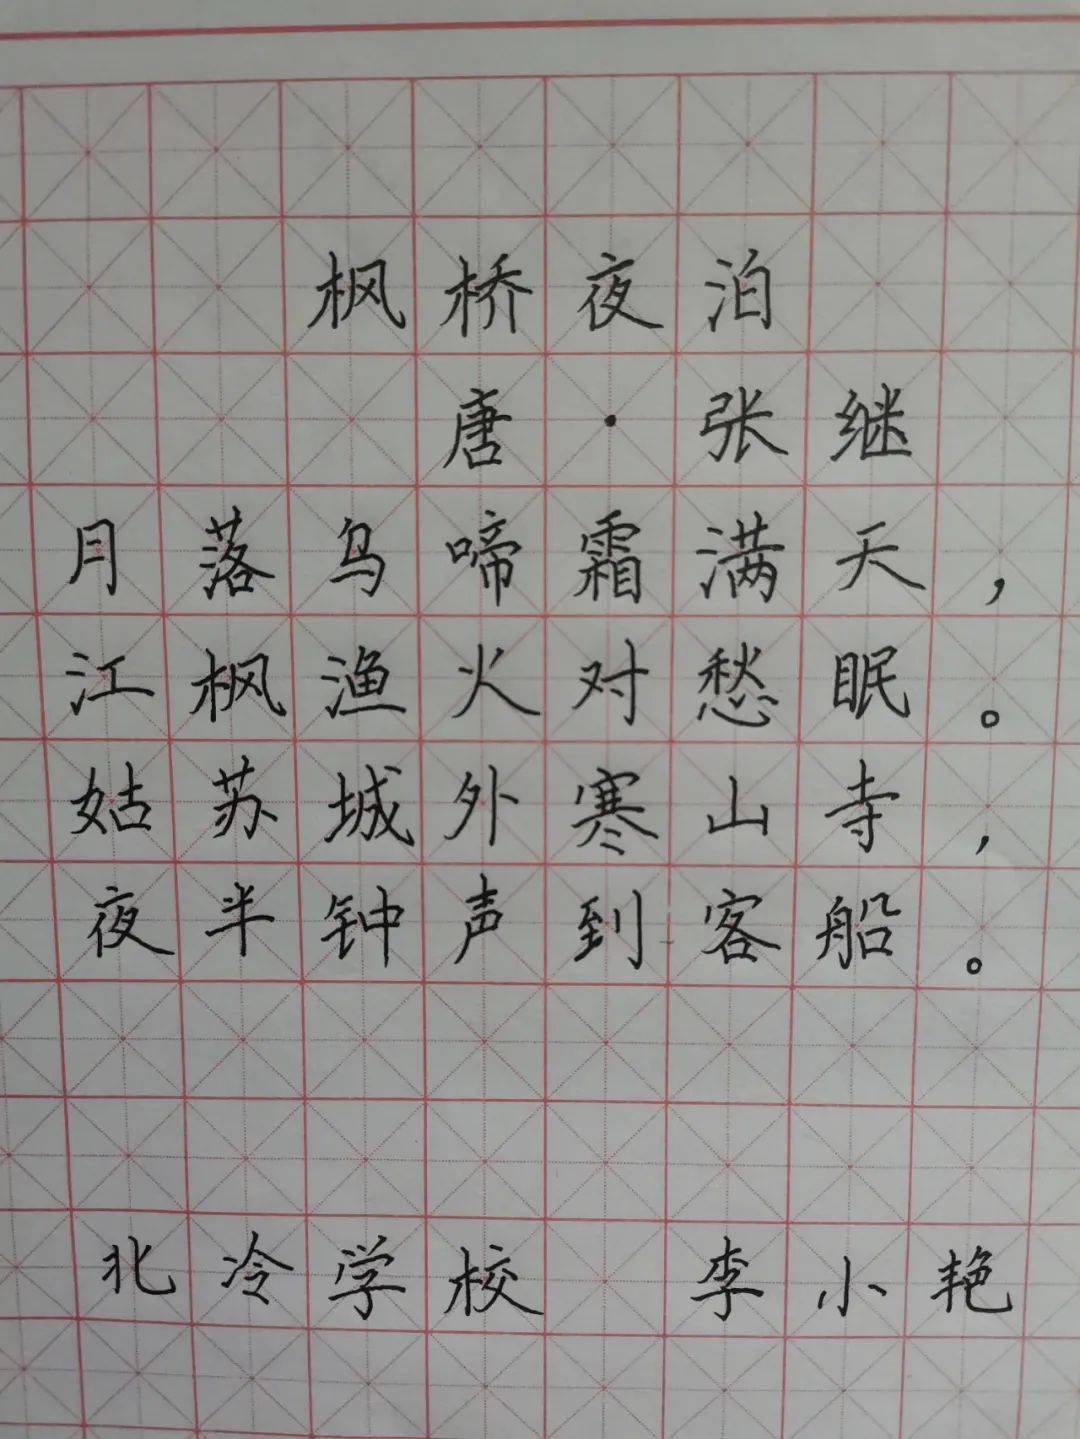 枫桥夜泊
唐·张继
月落乌啼霜满天，
江枫渔火对愁眠。
姑苏城外寒山寺，
夜半钟声到客船。
北冷学校 李小艳